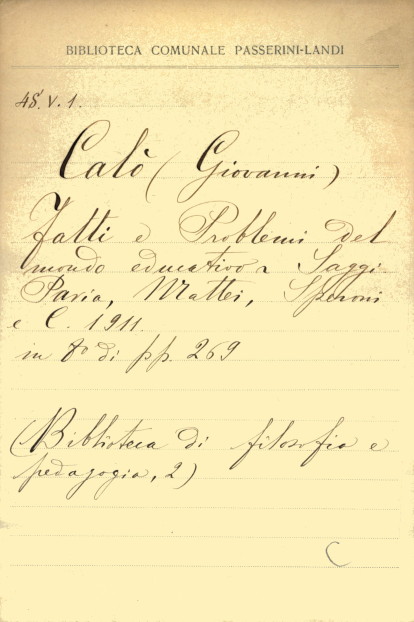 BIBLIOTECA COMUNALE PASSERINI-LANDI
48.V.1.
Calò (Giovanni)
Fatti e Problemi del
mondo educativo - Saggi.
Pavia, Mattei, Speroni
e C. 1911.
in 8º di pp. 269
(Biblioteca di filosofia e
pedagogia, 2)
C